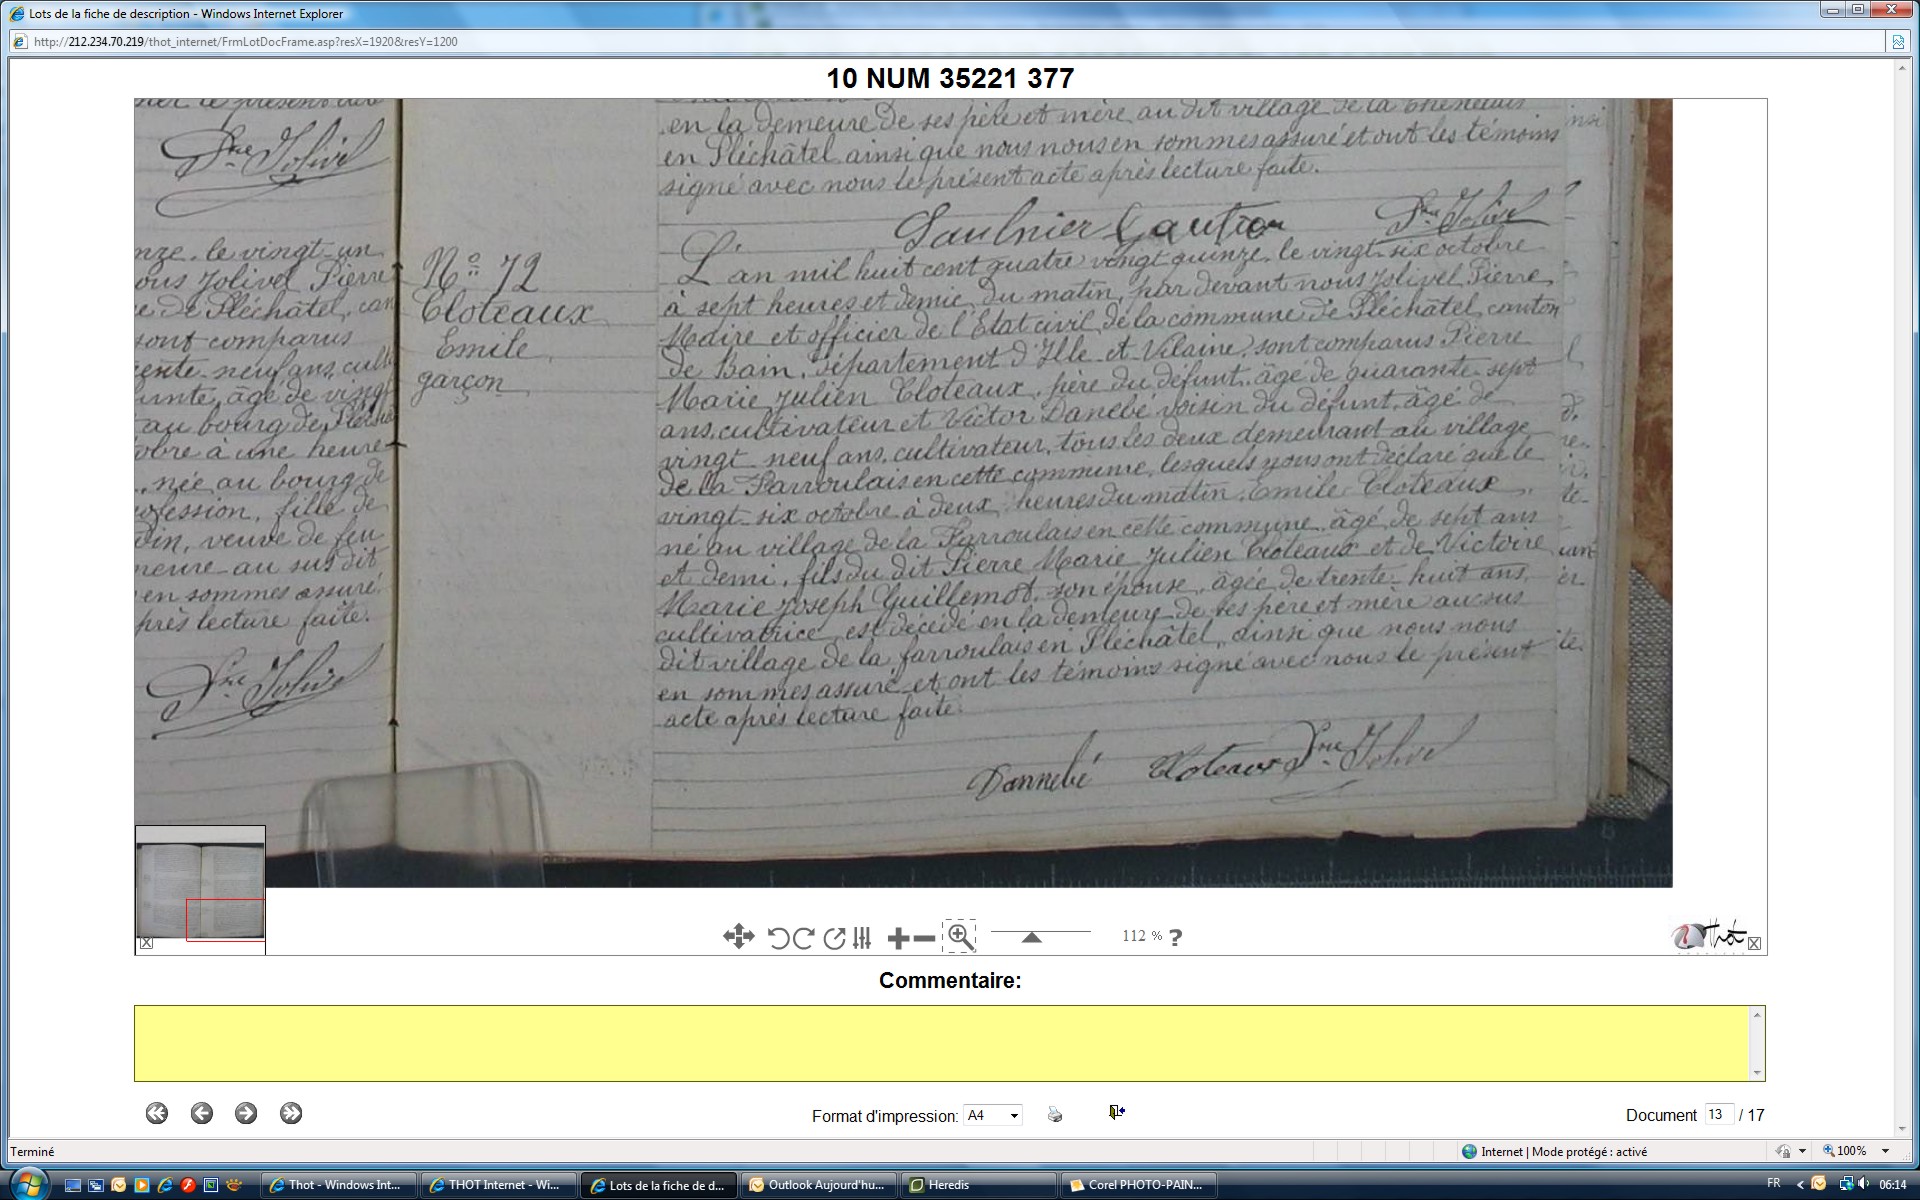 Lots de la fiche de description - Windows Internet Explorer
http://212.234.70.219/thot_internet/FrmLotDocFrame.asp?resX=1920&resY=1200
10 NUM 35221 377
Jolivel
nze, le vingt-un
ous Jolivel Pierre
e de Pléchâtel, can
sont comparus
rente-neuf ans, cult
funte, âgé de vingt
au bourg de
obre à une heure
née au bourg de
ofession, fille de
din, veuve de feu
meure au sus dit
en sommes assuré
près lecture faite.
Jolivel
en la demeure de ses père et mère au dit village de la
en Pléchâtel ainsi que nous nous en sommes assuré et ont les témoins
signé avec nous le présent acte après lecture faite.
Saulnier Gautier Jolivel
No 72
Cloteaux
Emile
garçon
L'an mil huit cent quatre vingt quinze, le vingt-six octobre
à sept heures et demie du matin, par devant nous Jolivel Pierre
Maire et officier de l'Etat civil de la commune de Pléchâtel, canton
de Bain, département d'Ille-et-Vilaine, sont comparus Pierre
Marie Julien Cloteaux, père du défunt, âgé de quarante-sept
ans, cultivateur et Victor Danebé voisin du défunt, âgé de
vingt-neuf ans, cultivateur, tous les deux demeurant au village
de la Farroulais en cette commune, lesquels nous ont déclaré que le
vingt-six octobre à deux heures du matin, Emile Cloteaux,
né au village de la Farroulais en cette commune, âgé de sept ans
et demi, fils du dit Pierre Marie Julien Cloteaux et de Victoire
Marie Joseph Guillemot, son épouse, âgée de trente-huit ans,
cultivatrice, est décédé en la demeure de ses père et mère au sus
dit village de la farroulais en Pléchâtel, ainsi que nous nous
en sommes assuré et ont les témoins signé avec nous le présent
acte après lecture faite.
Dannebé Cloteaux Jolivel
112 % ?
Thot
Commentaire:
Format d'impression: A4
Document 13 / 17
Terminé
Internet | Mode protégé : activé
100%
Thot - Windows Int...
THOT Internet - Wi...
Lots de la fiche de d...
Outlook Aujourd'hu...
Heredis
Corel PHOTO-PAIN...
FR
06:14